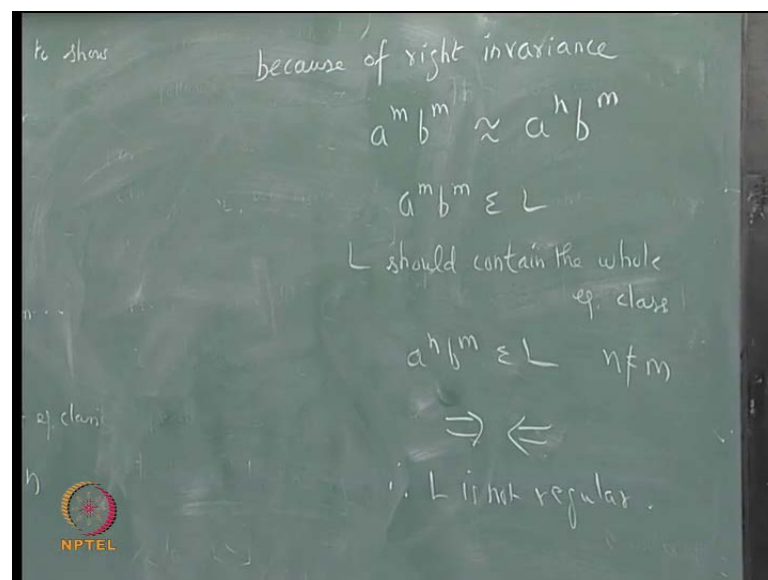 to show
because of right invariance
aᵐbᵐ ≈ aⁿbᵐ
aᵐbᵐ ε L
L should contain the whole
eq. class
aⁿbᵐ ε L n≠m
⇒ ⇐
eq. class
∴ L is not regular.
n
NPTEL